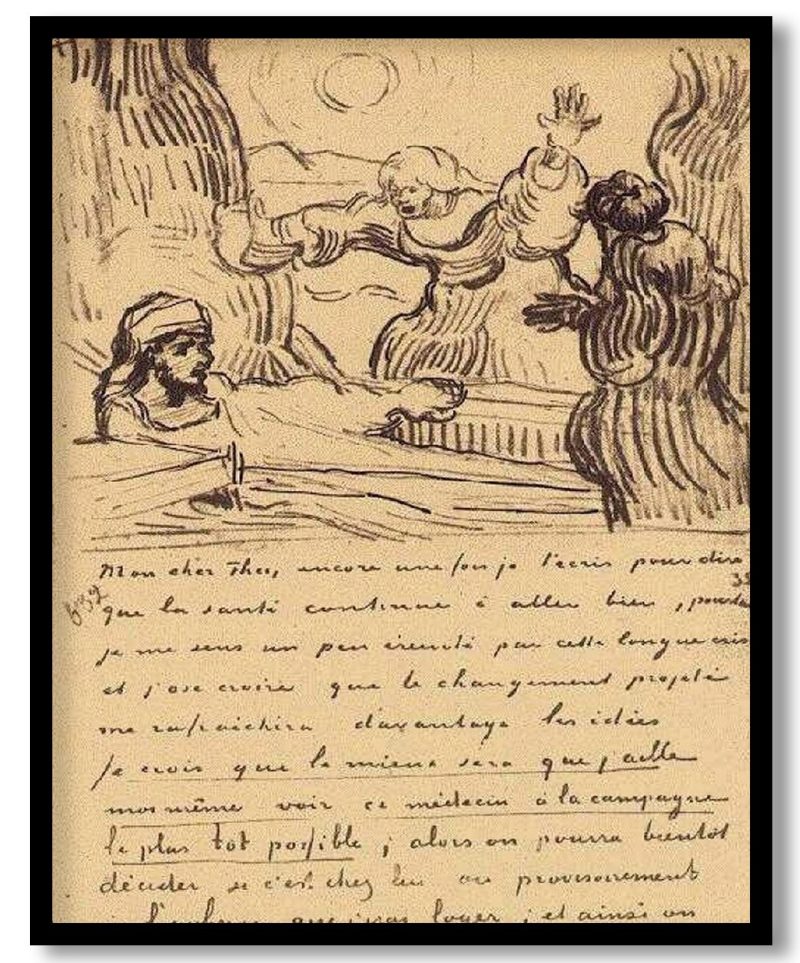 Mon cher Theo, encore une fois je t'ecris pour dire
que la santé continue à aller bien, pourtant
je me sens un peu éreinté par cette longue crise
et j'ose croire que le changement projeté
me rafraichira davantage les idées
Je crois que le mieux sera que j'aille
moi même voir ce médecin à la campagne
le plus tot possible; alors on pourra bientot
décider si c'est chez lui ou provisoirement
à l'auberge que j'irai loger; et ainsi on
632